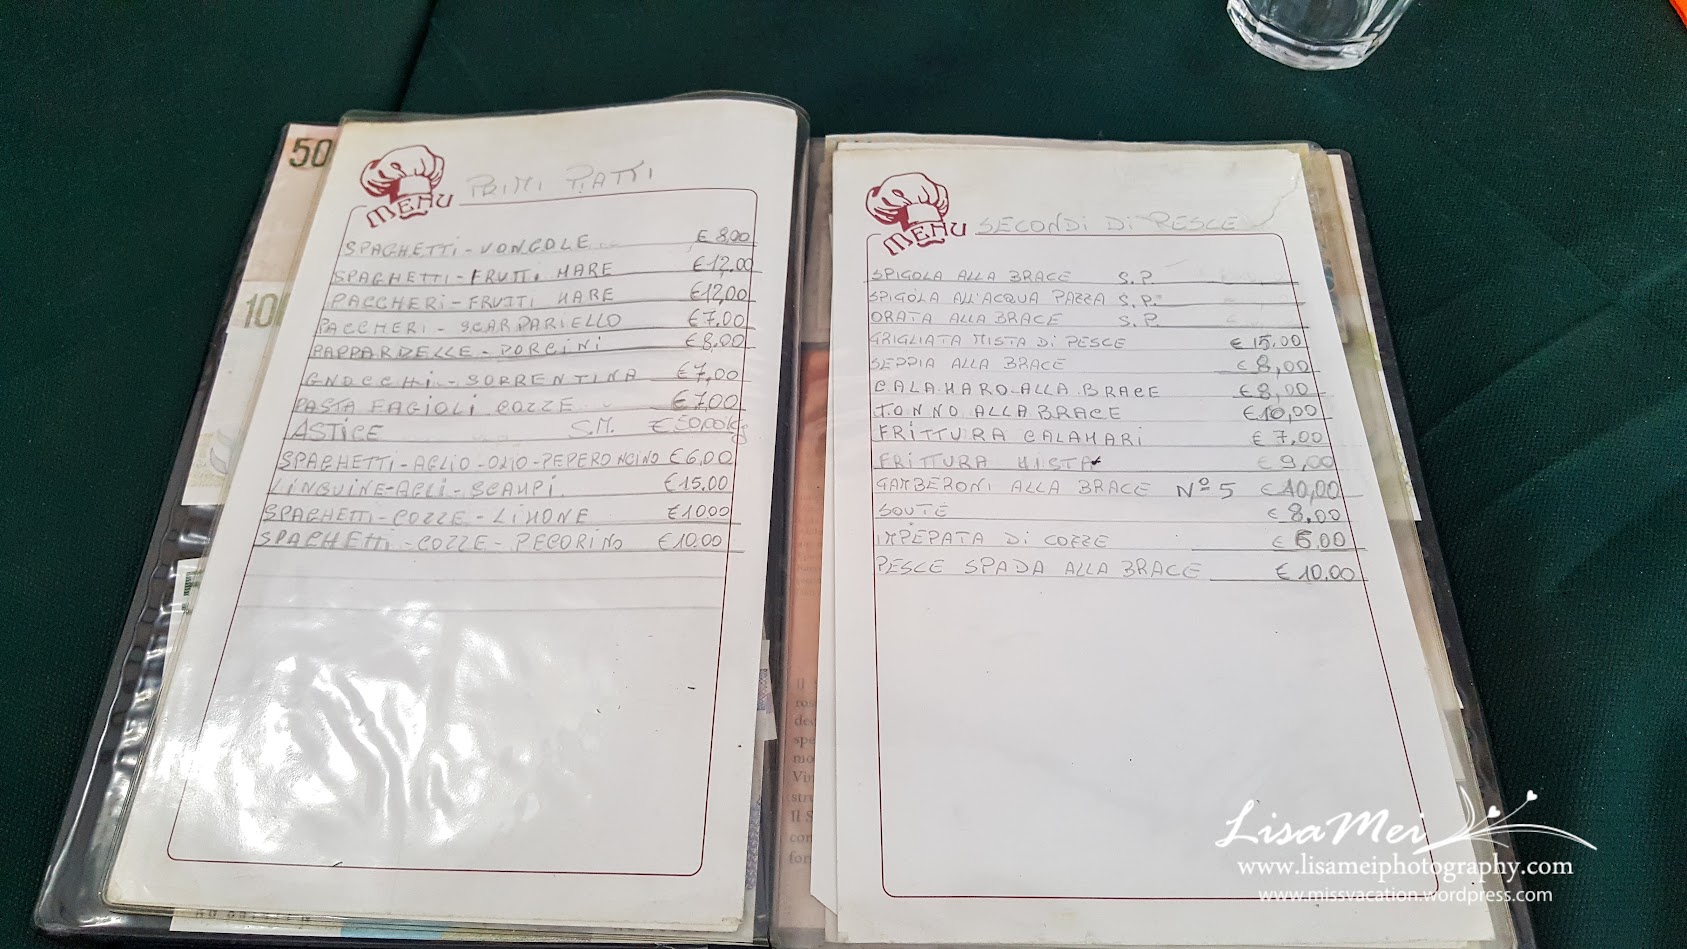 50
10
MENU PRIMI PIATTI
SPAGHETTI-VONGOLE € 8,00
SPAGHETTI-FRUTTI MARE €12,00
PACCHERI-FRUTTI MARE €12,00
PACCHERI-SCARPARIELLO €7,00
PAPPARDELLE-PORCINI €8,00
GNOCCHI-SORRENTINA €7,00
PASTA FAGIOLI COZZE €7,00
ASTICE S.M. €50,00 kg
SPAGHETTI-AGLIO-OLIO-PEPERONCINO €6,00
LINGUINE-AGLI-SCAMPI €15,00
SPAGHETTI-COZZE-LIMONE €1000
SPAGHETTI-COZZE-PECORINO €10,00
MENU SECONDI DI PESCE
SPIGOLA ALLA BRACE S.P.
SPIGOLA ALL'ACQUA PAZZA S.P.
ORATA ALLA BRACE S.P.
GRIGLIATA MISTA DI PESCE € 15,00
SEPPIA ALLA BRACE € 8,00
CALAMARO ALLA BRACE € 8,00
TONNO ALLA BRACE €10,00
FRITTURA CALAMARI € 7,00
FRITTURA MISTA € 9,00
GAMBERONI ALLA BRACE Nº 5 € 10,00
SOUTÈ € 8,00
IMPEPATA DI COZZE € 6,00
PESCE SPADA ALLA BRACE € 10,00
Il
ros
dec
spe
mo
Vin
stru
Il S
con
for
Lisa Mei
www.lisameiphotography.com
www.missvacation.wordpress.com